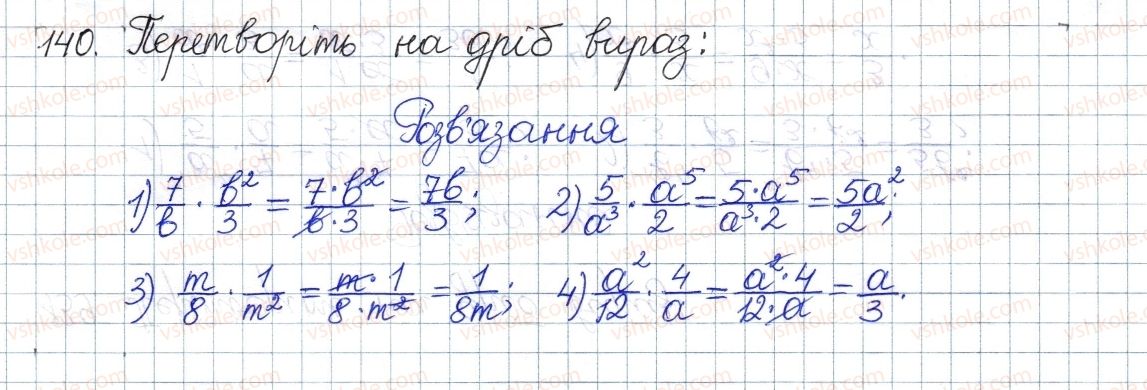 140. Перетворіть на дріб вираз:
Розв'язання
1) 7/в · в²/3 = 7·в²/в·3 = 7в/3; 2) 5/a³ · a⁵/2 = 5·a⁵/a³·2 = 5a²/2;
3) m/8 · 1/m² = m·1/8·m² = 1/8m; 4) a²/12 · 4/a = a²·4/12·a = a/3.
vshkole.com